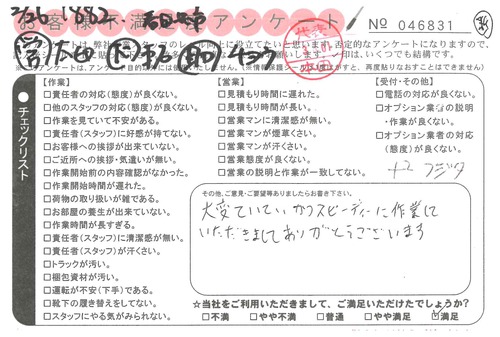 2/26 1882
お客様不満足アンケート
№ 046831
アンケートは、弊社
スタッフのレベル向上に役立てたいと思います。否定的なアンケートになりますので、
いくつでも結構です。
チェックリスト
【作業】
□責任者の対応(態度)が良くない。
□他のスタッフの対応(態度)が良くない。
□作業を見ていて不安がある。
□責任者(スタッフ)に好感が持てない。
□お客様への挨拶が出来ていない。
□ご近所への挨拶・気遣いが無い。
□作業開始前の内容確認がなかった。
□作業開始時間が遅れた。
□荷物の取り扱いが雑である。
□お部屋の養生が出来ていない。
□作業時間が長すぎる。
□責任者(スタッフ)に清潔感が無い。
□責任者(スタッフ)が汗くさい。
□トラックが汚い。
□梱包資材が汚い。
□運転が不安(下手)である。
□靴下の履き替えをしてない。
□スタッフにやる気がみられない。
【営業】
□見積もりが時間に遅れた。
□見積もり時間が長い。
□営業マンに清潔感が無い。
□営業マンが煙草くさい。
□営業マンが汗くさい。
□営業態度が良くない。
□営業の説明と作業が一致してない。
【受付・その他】
□電話の対応が良くない。
□オプション業者の説明
・作業が良くない。
□オプション業者の対応
(態度)が良くない。
その他、ご意見・ご要望等ありましたらお書き下さい。
大変ていねいかつスピーディーに作業して
いただきましてありがとうございます
☆当社をご利用いただきまして、ご満足いただけたでしょうか?
□不満 □やや不満 □普通 □やや満足 □満足